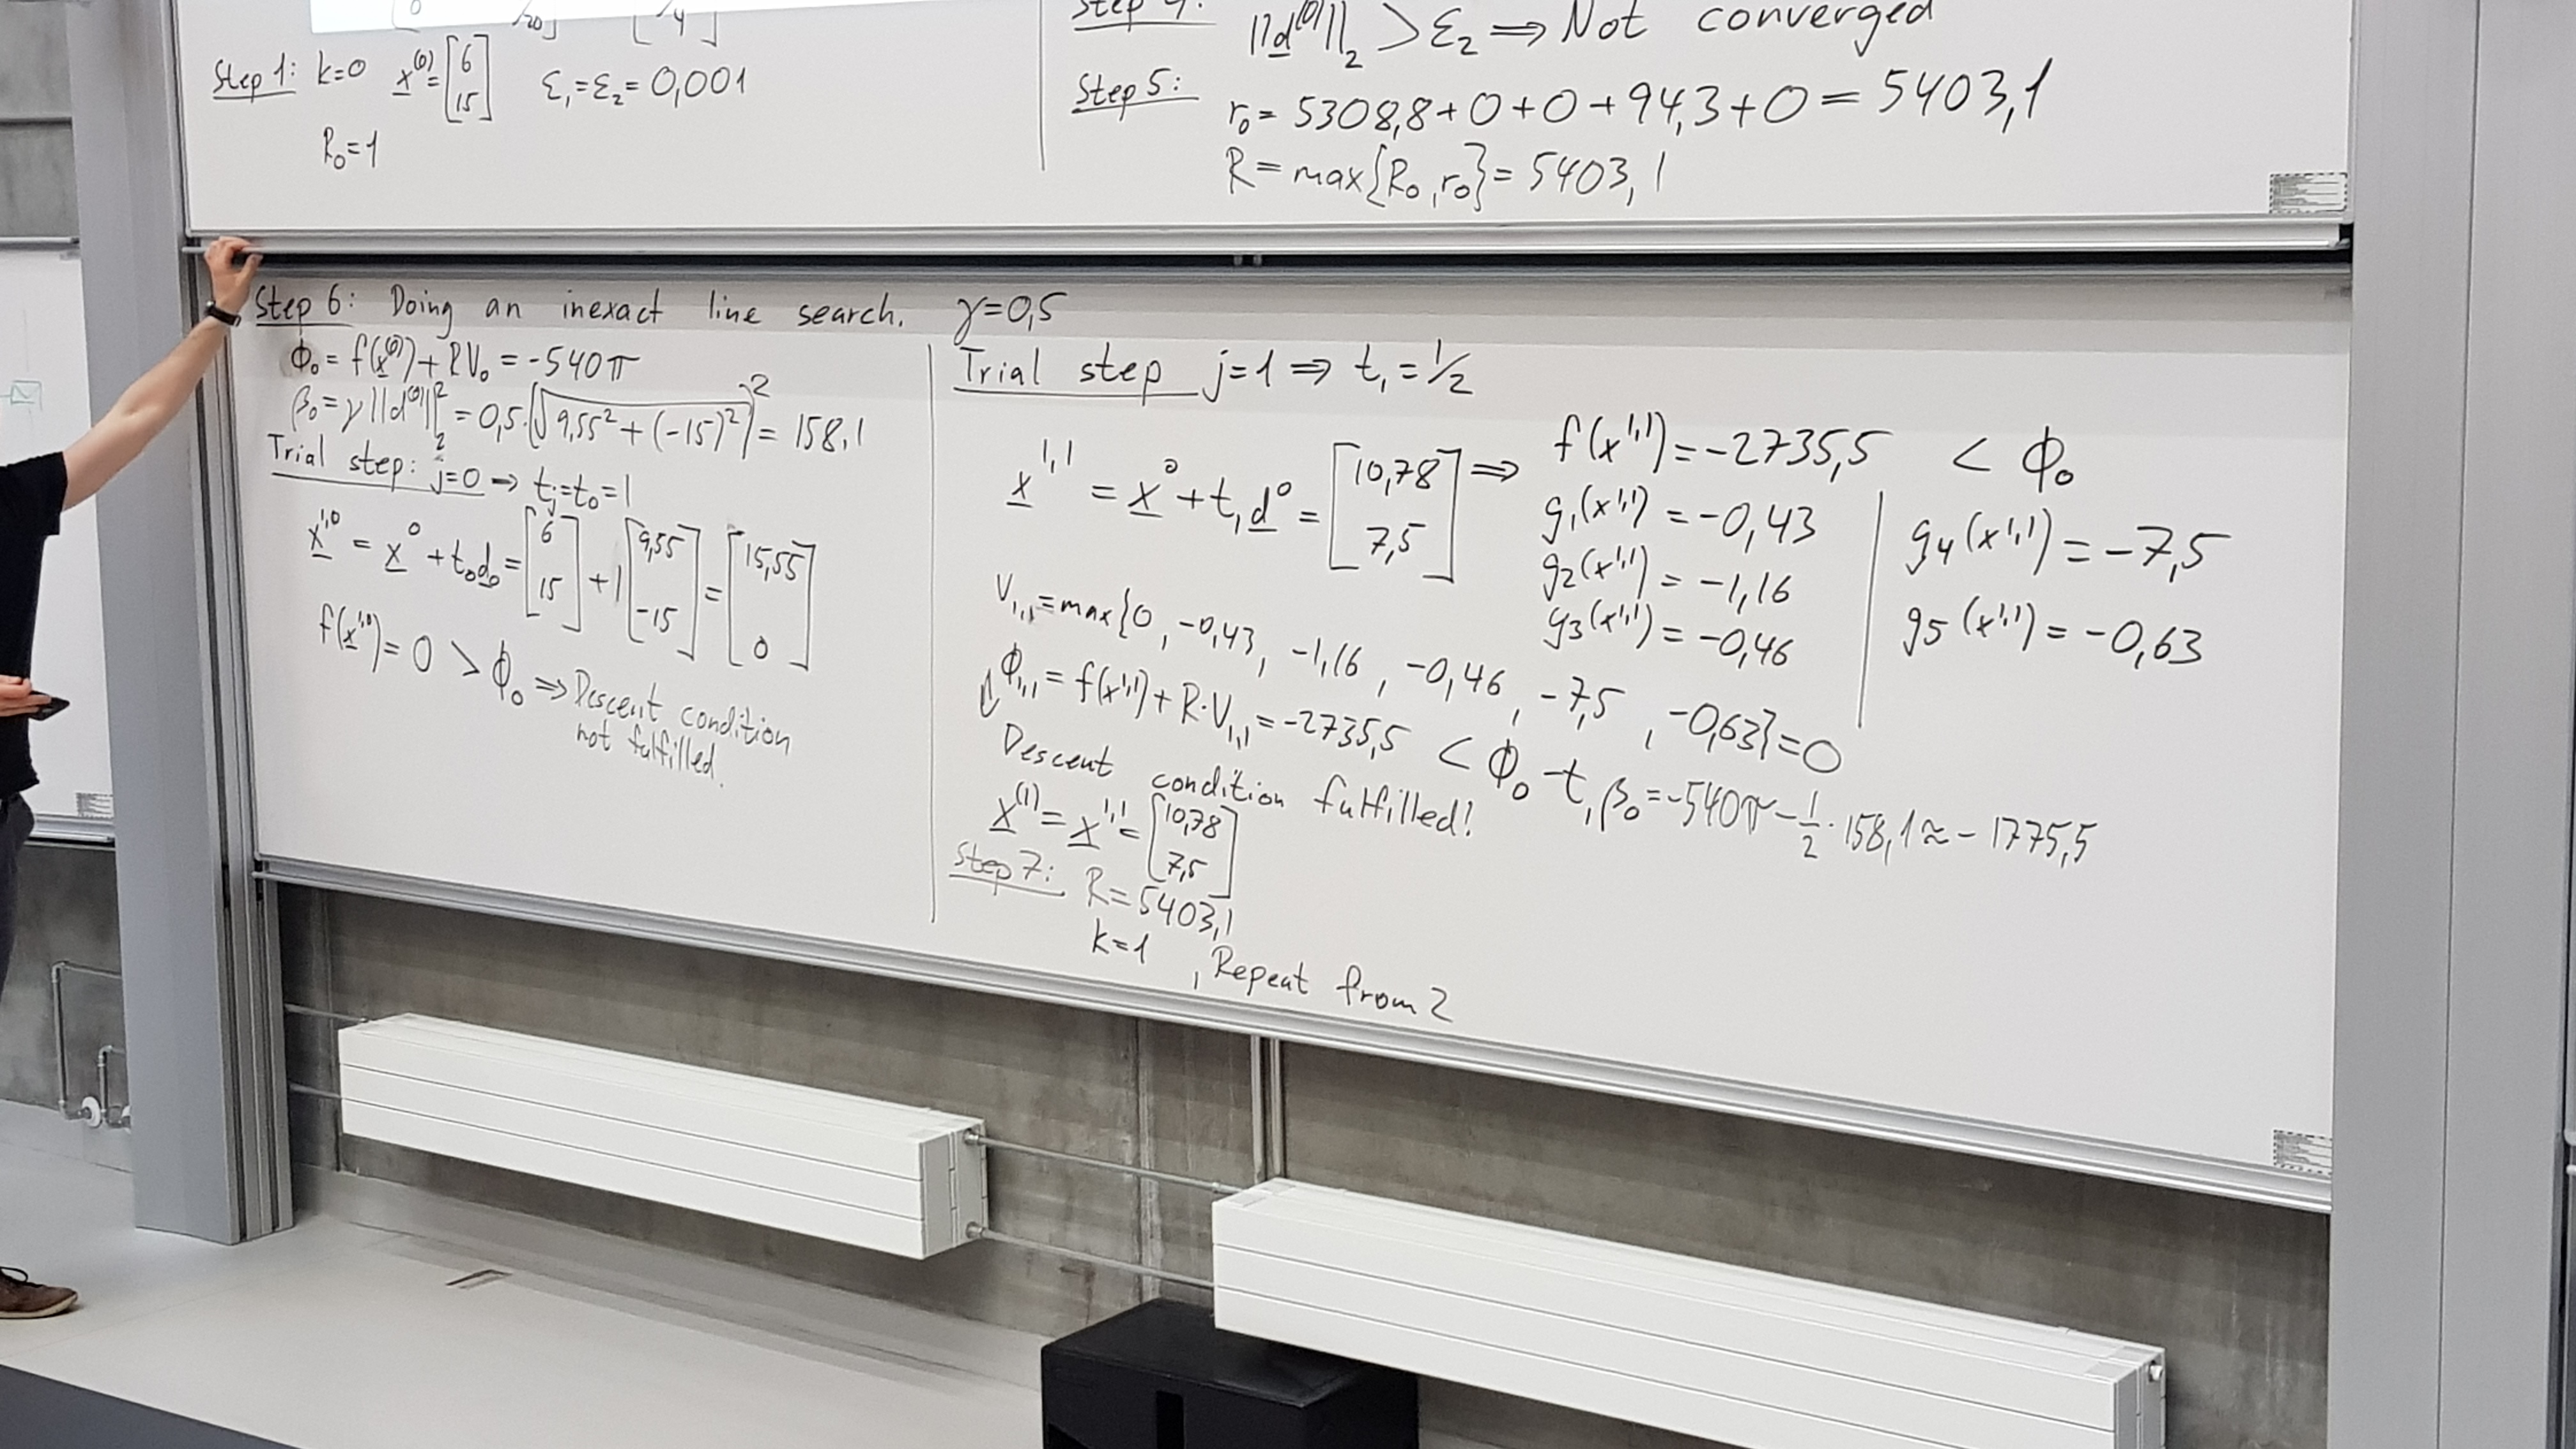 0 /20] [ /4 ]
Step 1: k=0 x^(0)=[6 15] ε₁=ε₂=0,001
R₀=1
Step 4: ||d^(0)||₂ > ε₂ ⇒ Not converged
Step 5: r₀= 5308,8+0+0+94,3+0 = 5403,1
R = max{R₀,r₀}= 5403,1
Step 6: Doing an inexact line search. γ=0,5
Φ₀= f(x^(0))+RV₀ = -540π
β₀= γ||d^(0)||₂² = 0,5·(√(9,55²+(-15)²))² = 158,1
Trial step: j=0 → tⱼ=t₀=1
x^1,0 = x^0 + t₀d₀ = [6 15] + 1[9,55 -15] = [15,55 0]
f(x^1,0)= 0 > Φ₀ ⇒ Descent condition
not fulfilled.
Trial step j=1 ⇒ t₁ = 1/2
x^1,1 = x^0 + t₁d^0 = [10,78 7,5] ⇒ f(x^1,1) = -2735,5 < Φ₀
g₁(x^1,1) = -0,43
g₂(x^1,1) = -1,16
g₃(x^1,1) = -0,46
g₄(x^1,1) = -7,5
g₅(x^1,1) = -0,63
V₁,₁=max{0, -0,43, -1,16, -0,46, -7,5, -0,63}=0
Φ₁,₁ = f(x^1,1)+R·V₁,₁ = -2735,5 < Φ₀ -t₁β₀ = -540π - 1/2·158,1 ≈ -1775,5
⇓
Descent condition fulfilled!
x^(1) = x^1,1 = [10,78 7,5]
Step 7: R=5403,1
k=1 , Repeat from 2